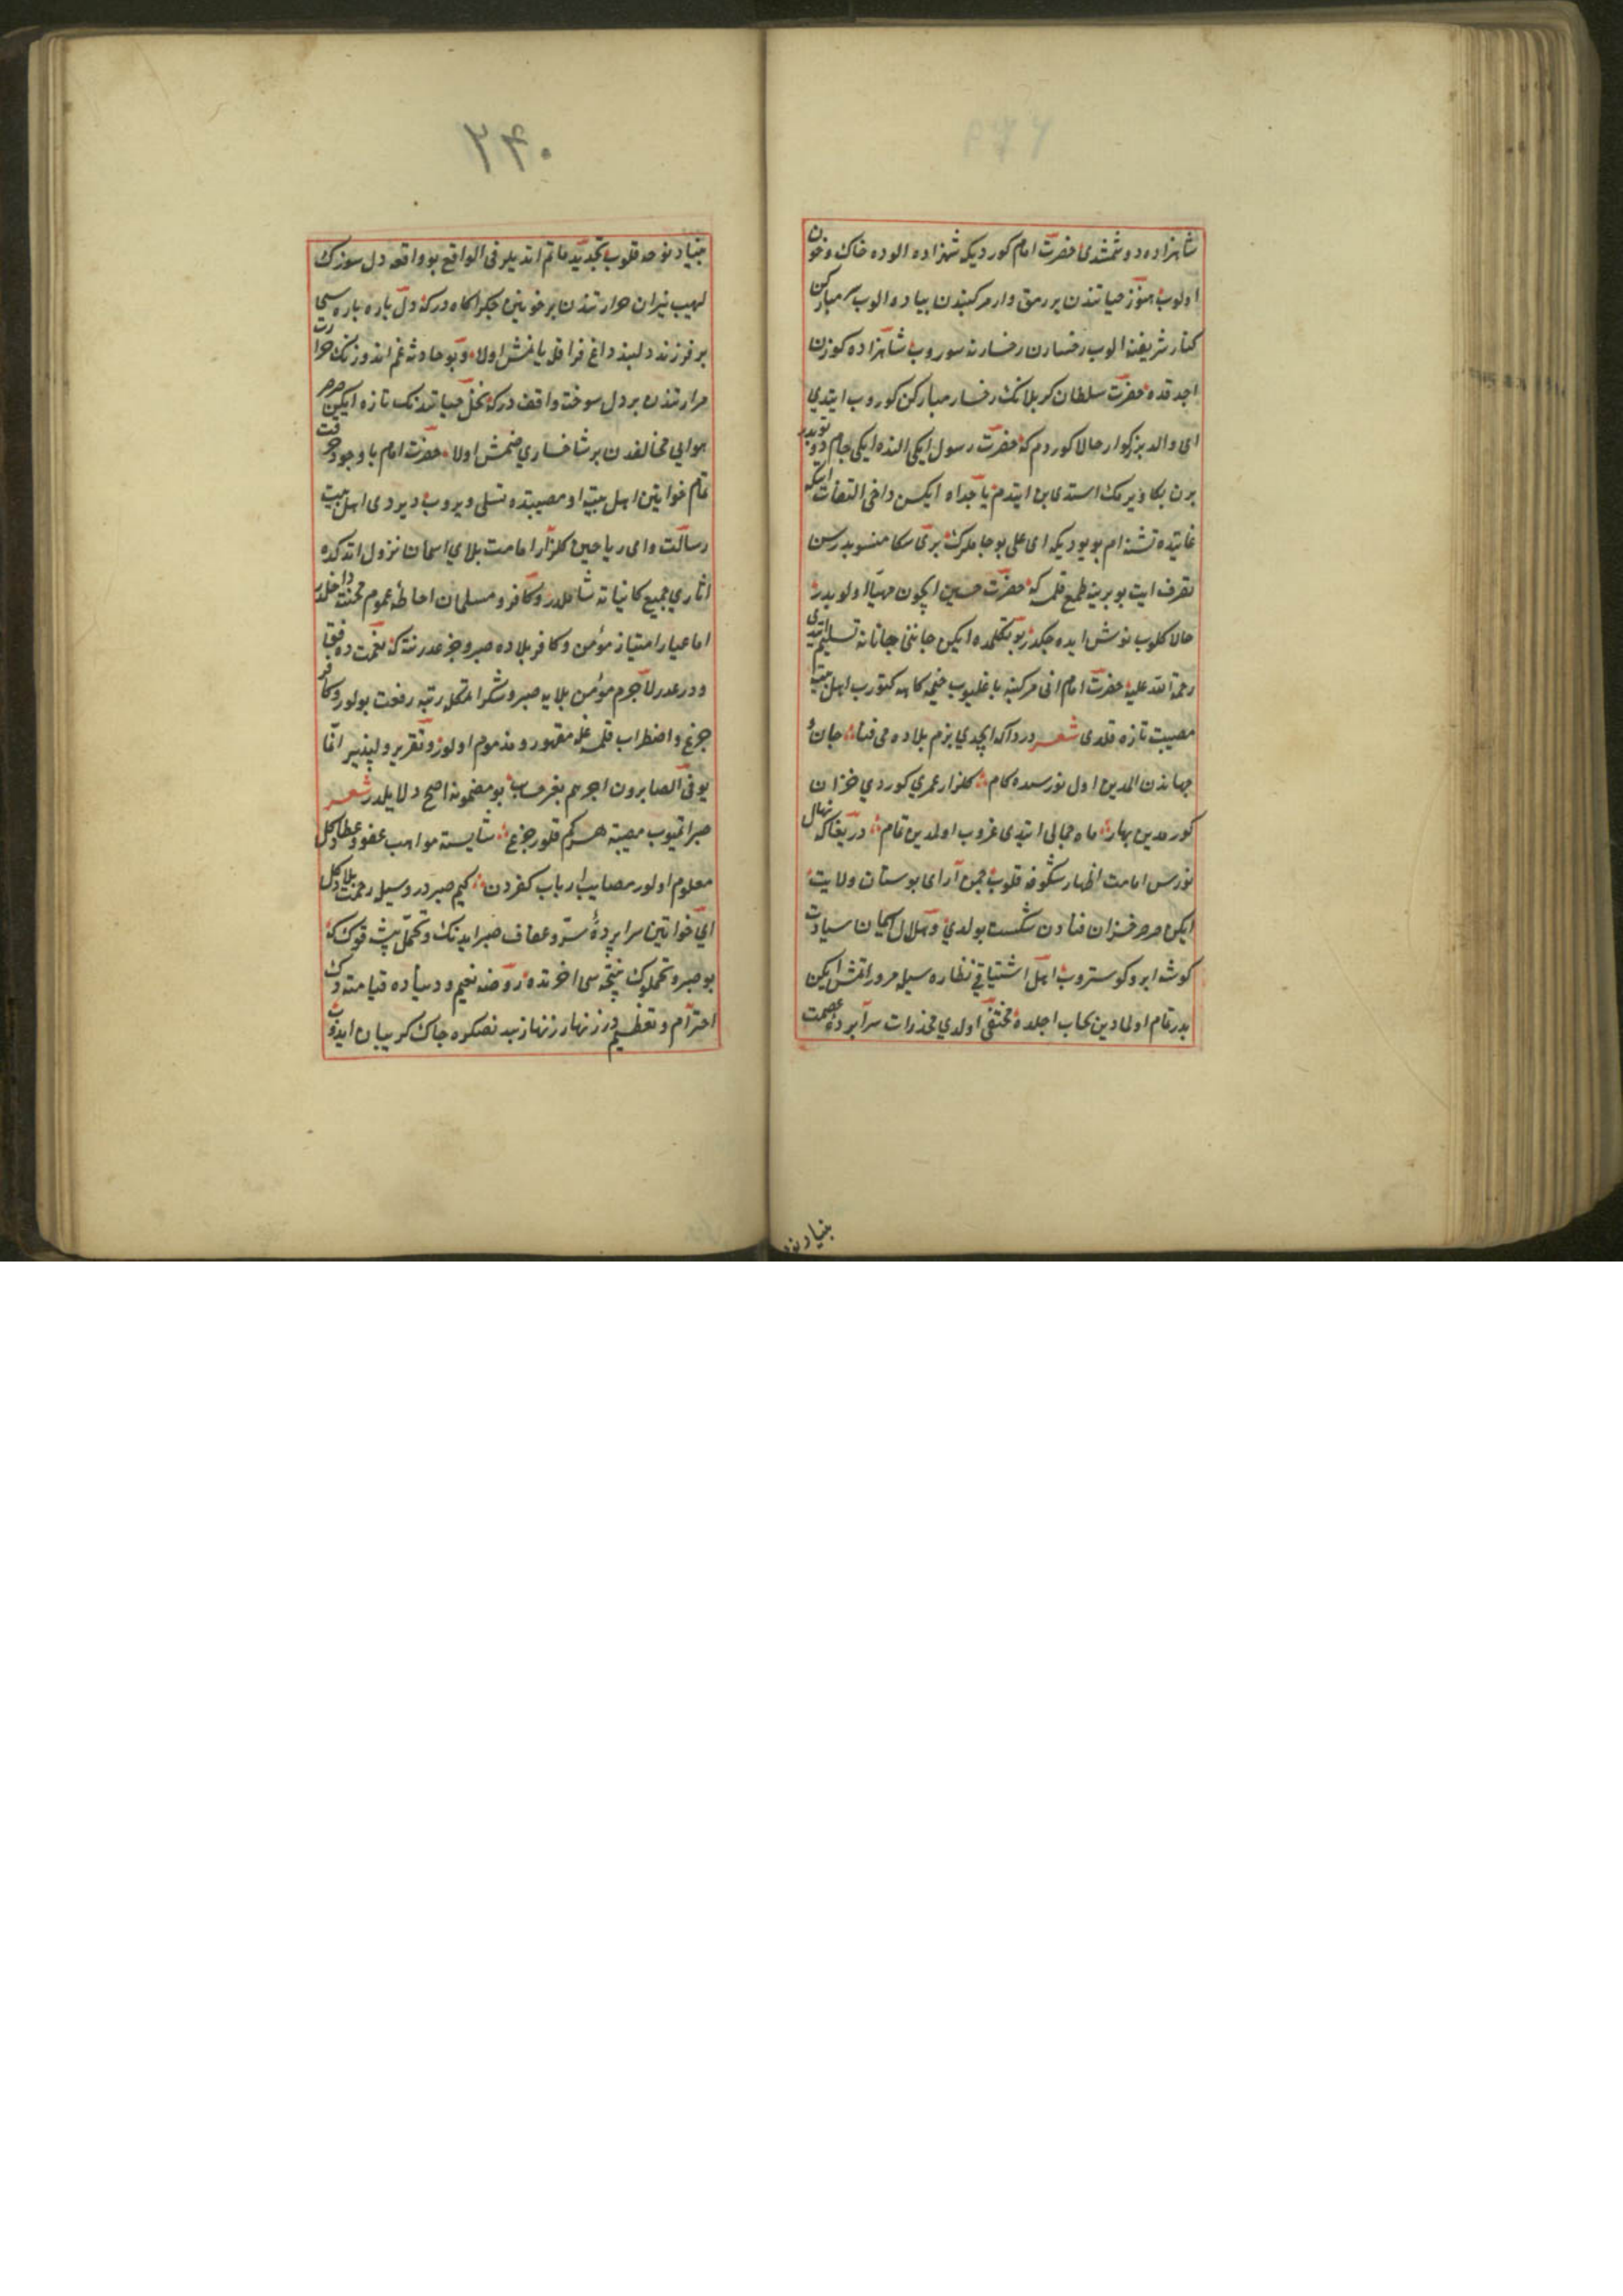 شاهزاده دوشمشدی حضرت امام کوردیکه شهزاده الوده خاک و خون
اولوب هنوز حیاتندن بر رمق وار مرکبندن پیاده الوب سر مبارکن
کنار شریفنه الوب رخسارن رخسارنه سوروب شاهزاده کوزن
اجدقده حضرت سلطان کربلانک رخسار مبارکن کوروب ایتدی
ای والد بزرکوار حالا کوردم که حضرت رسول ایکی النده ایکی جام طوتوبدر
برن بکا ویرمک استدی بن ایتدم یا جداه ایکسن داخی التفات ایله
غایتده تشنه ام بویوردیکه ای علی بو جاملرک بری سکا منسوبدر سن
تصرف ایت بو برینه طمع قلمه که حضرت حسین ایچون مهیا اولوبدر
حالا کلوب نوش ایده جکدر بو تکلمده ایکن جاننی جانانه تسلیم ایتدی
رحمة الله علیه حضرت امام انی مرکبنه باغلیوب خیمه کاهه کتورب اهل بیت
مصیبت تازه قلدی شعر درداکه ایچدی بزم بلاده می فنا جان و
جهاندن المدین اول نورسیده کام کلزار عمری کوردی خزان
کورمدین بهار ماه جمالی ایتدی غروب اولمدین تمام دریغاکه نهال
نورس امامت اظهار شکوفه قلوب چمن آرای بوستان ولایت
ایکن صرصر خزان فنادن شکست بولدی و هلال اسمان سیادت
کوشه ابرو کوستروب اهل اشتیاقی نظاره سیله مسرور اتمش ایکن
بدر تمام اولمادین سحاب اجلده مختفی اولدی مخدرات سراپرده عصمت
بنیاد نوحه
۲۴۰
بنیاد نوحه قلوب تجدید ماتم اتدیلر فی الواقع بو واقعه دل سوزک
لهیب نیران حرارتندن بر خونین جکر اکاه درکه دل پاره پاره سی
بر فرزند دلبند داغ فراقله یانمش اولا و بو حادثه غم اندوزنک حرارت
مرارتندن بر دل سوخته واقف درکه نخل حیاتینک تازه ایکن صرصر
هوای مخالفدن بر شاخساری صنمش اولا حضرت امام با وجود حرقت
تمام خواتین اهل بیته او مصیبتده تسلی ویروب دیردی ای اهل بیت
رسالت و ای ریاحین کلزار امامت بلای اسمان نزول اتدکده
اثاری جمیع کائیاته شاملدر و کافر و مسلمان احاطه عموم محنته داخلدر
اما عیار امتیاز مؤمن و کافر بلاده صبر و جزعدر نته که نعمت ده
لاجرم مؤمن بلایه صبر و شکر اتمکله رتبه رفعت بولور و کافر
جزع و اضطراب قلمغله مقهور و مذموم اولور و تقریر دلپذیر انما
یوفی الصابرون اجرهم بغیر حساب بو مضمونه اصح دلایلدر شعر
صبر اتمیوب مصیبته هر کم قلور جزع شایسته مواهب عفو و عطا دکل
معلوم اولور مصایب ارباب کفردن کیم صبردر وسیله رحمت بلا دکل
ای خواتین سراپرده ستر و عفاف صبر ایدنک و تحمل پیشه قونک که
بو صبر و تحملوک نتیجه سی اخرتده روضه نعیم و دنیاده قیامته دک
احترام و تعظیمدر زنهار زنهار بندنصکره جاک کریبان ایدوب